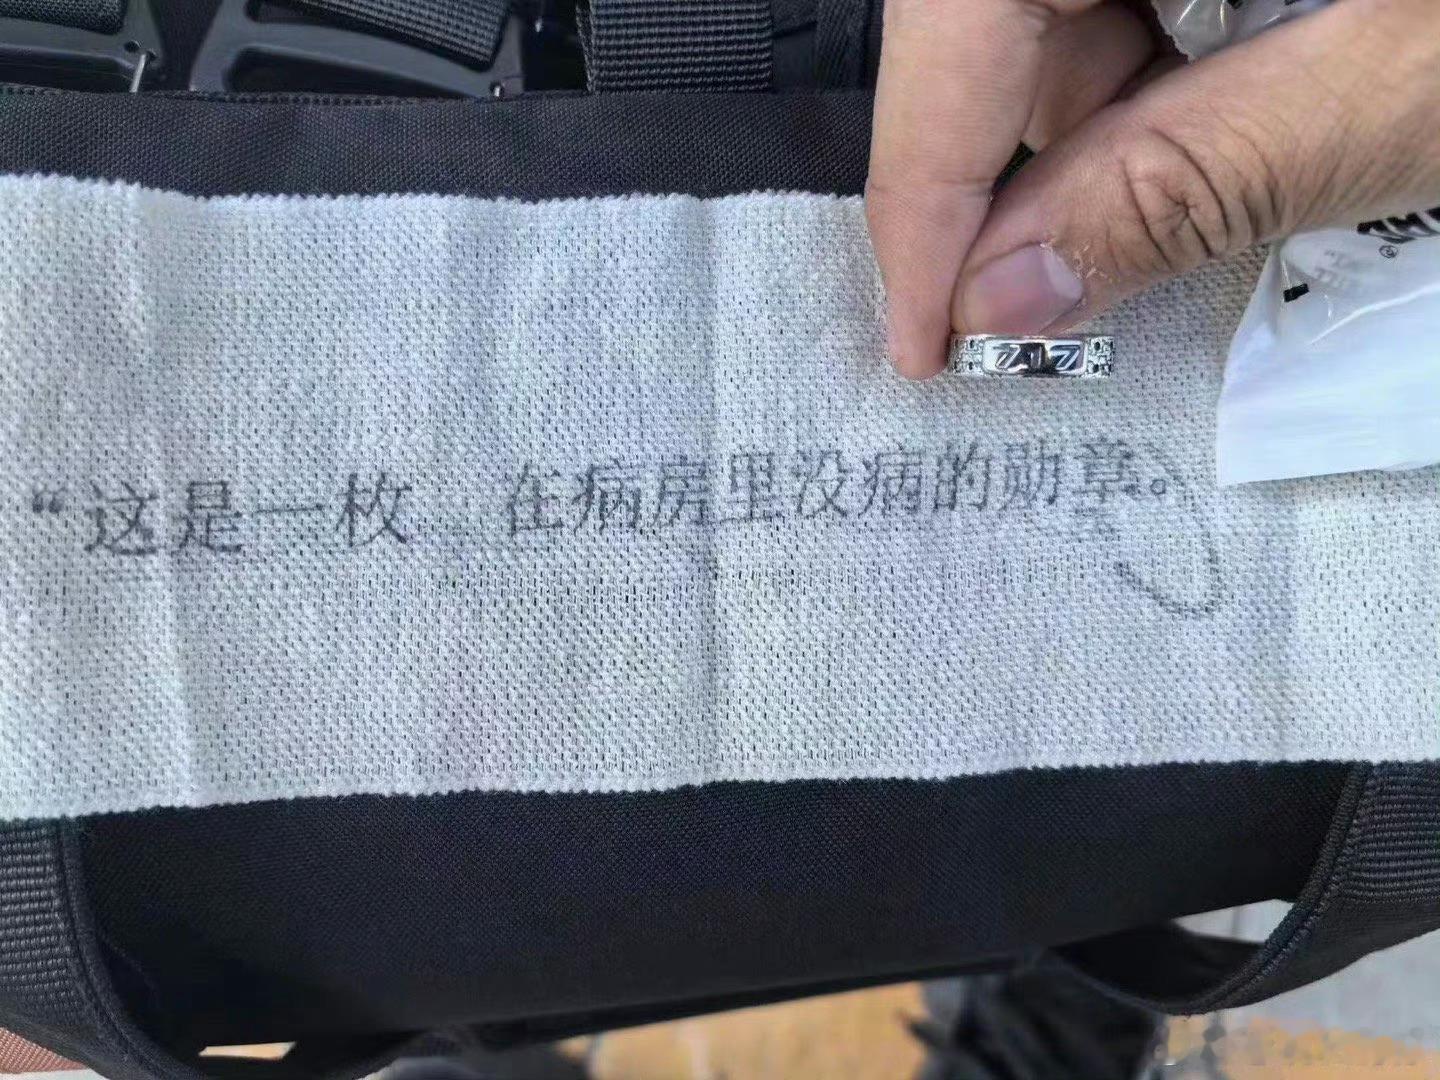 717
“这是一枚 在病房里没病的勋章。